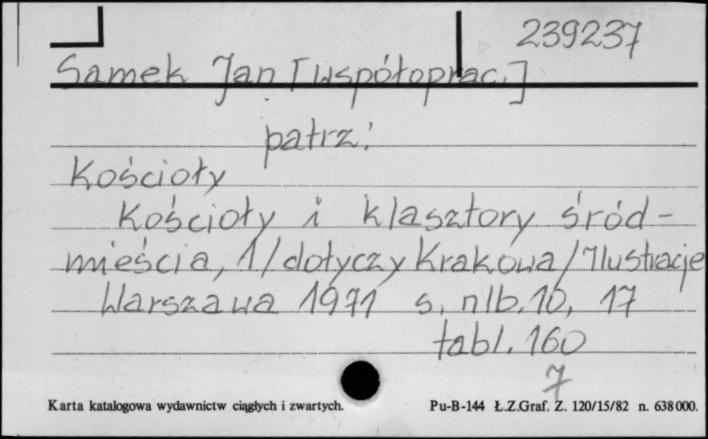 239237
Samek Jan [współoprac.]
patrz:
Kościoły
Kościoły i klasztory śród-
mieścia, 1/dotyczy Krakowa/Ilustracje
Warszawa 1971 s. nlb.10, 17
tabl. 160
7
Karta katalogowa wydawnictw ciągłych i zwartych. Pu-B-144 Ł.Z.Graf. Z. 120/15/82 n. 638000.